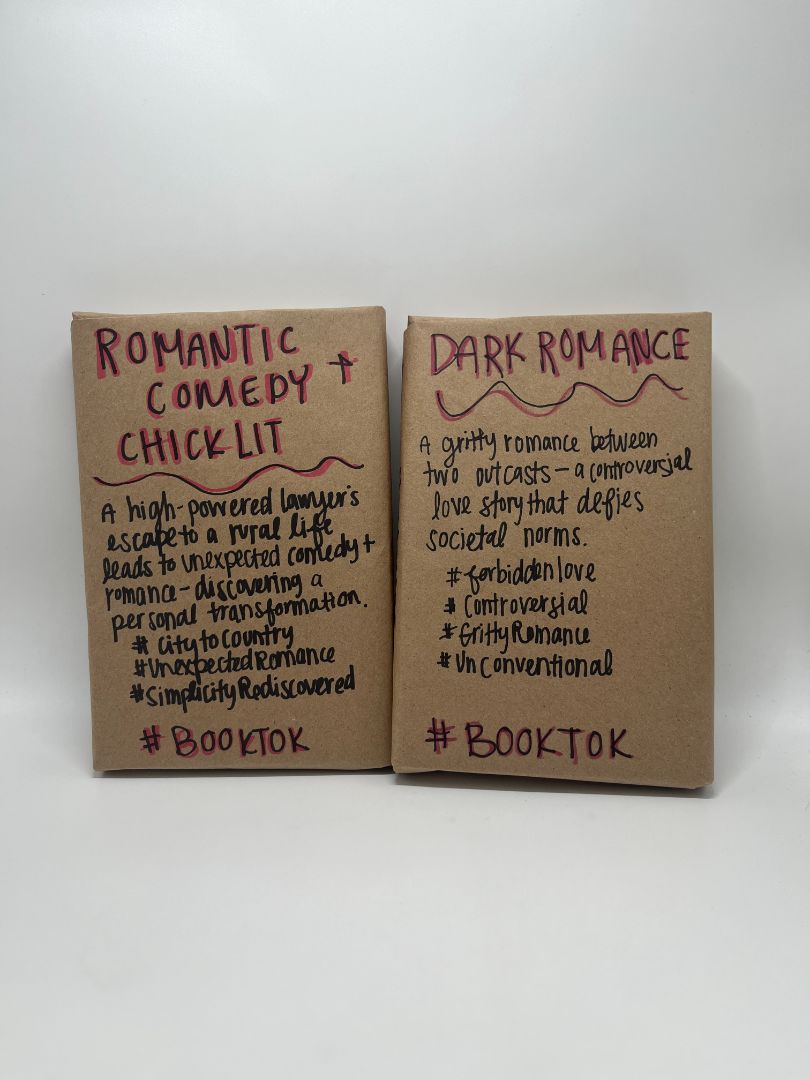 ROMANTIC
COMEDY +
CHICKLIT
A high-powered lawyer's
escape to a rural life
leads to unexpected comedy +
romance-discovering a
personal transformation.
# City to Country
#UnexpectedRomance
#SimplicityRediscovered
# BOOKTOK
DARK ROMANCE
A gritty romance between
two outcasts - a controversial
love story that defies
societal norms.
#forbiddenlove
# Controversial
#GrittyRomance
#Unconventional
# BOOKTOK